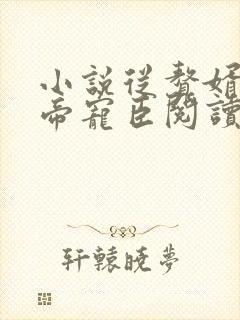 小説從贅婿
帝寵臣閱讀
轩辕晓梦